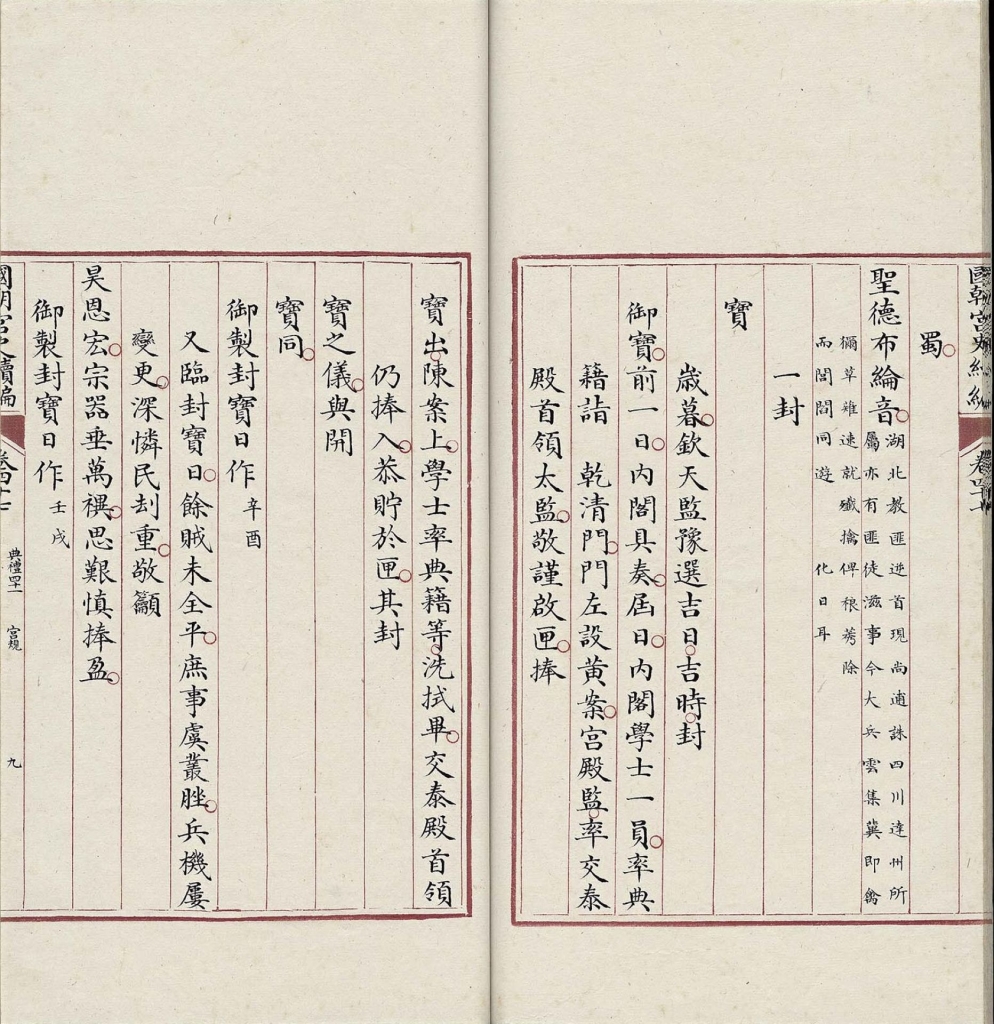 蜀
聖德布綸音湖北教匪逆首現尚逋誅四川達州所
屬亦有匪徒滋事今大兵雲集冀即禽
獮草雉速就殲擒俾稂莠除
而閭閻同遊化日耳
一封
寶
歲暮欽天監豫選吉日吉時封
御寶前一日內閣具奏屆日內閣學士一員率典
籍詣乾清門門左設黃案宮殿監率交泰
殿首領太監敬謹啟匣捧
寶出陳案上學士率典籍等洗拭畢交泰殿首領
仍捧入恭貯於匣其封
寶之儀與開
寶同
御製封寶日作辛酉
又臨封寶日餘賊未全平庶事虞叢脞兵機屢
變更深憐民刦重敬籲
昊恩宏宗器垂萬禩思艱慎捧盈
御製封寶日作壬戌
國朝宮史續編 卷四十七 典禮四十一 宮規 九